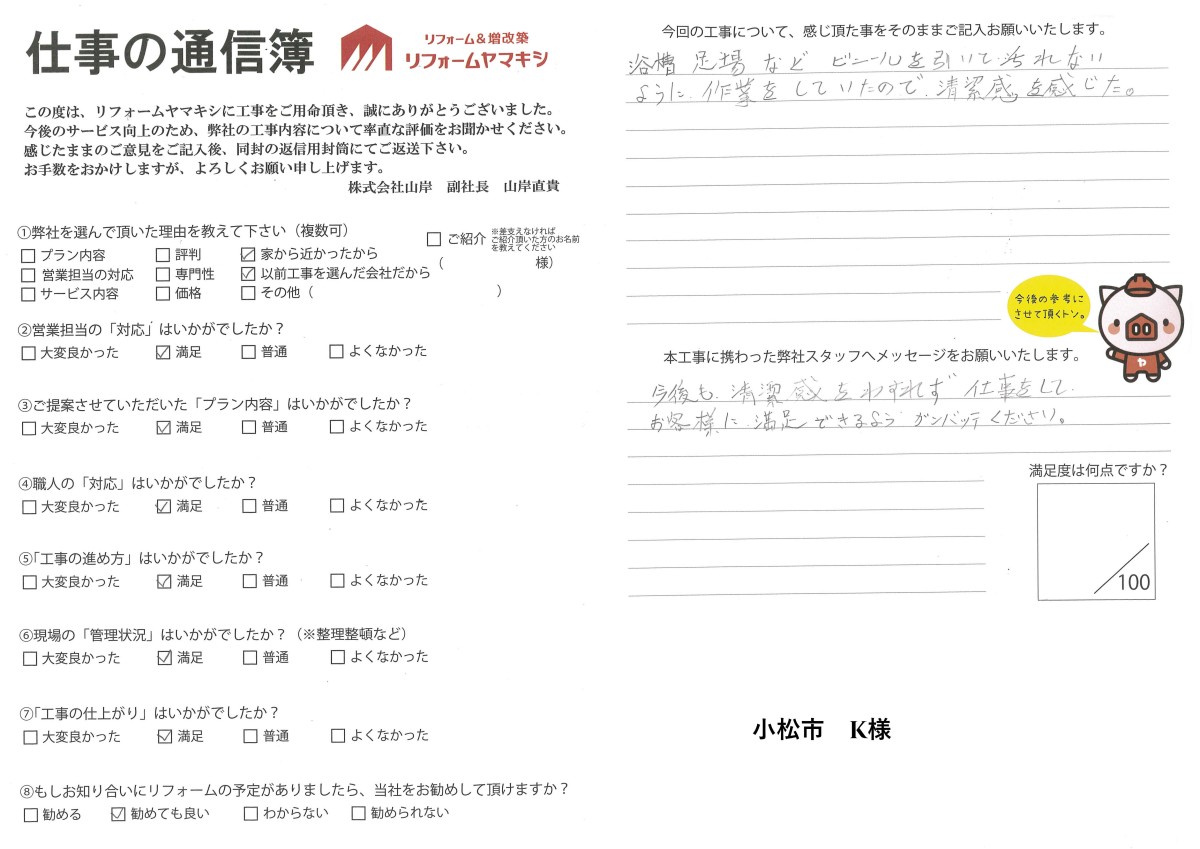 仕事の通信簿
リフォーム&増改築
リフォームヤマキシ
この度は、リフォームヤマキシに工事をご用命頂き、誠にありがとうございました。
今後のサービス向上のため、弊社の工事内容について率直な評価をお聞かせください。
感じたままのご意見をご記入後、同封の返信用封筒にてご返送下さい。
お手数をおかけしますが、よろしくお願い申し上げます。
株式会社山岸 副社長 山岸直貴
①弊社を選んで頂いた理由を教えて下さい（複数可）
□ プラン内容 □ 評判 ☑ 家から近かったから
□ 営業担当の対応 □ 専門性 ☑ 以前工事を選んだ会社だから
□ サービス内容 □ 価格 □ その他（ ）
□ ご紹介
※差支えなければ
ご紹介頂いた方のお名前
を教えてください
（ 様）
②営業担当の「対応」はいかがでしたか？
□ 大変良かった ☑ 満足 □ 普通 □ よくなかった
③ご提案させていただいた「プラン内容」はいかがでしたか？
□ 大変良かった ☑ 満足 □ 普通 □ よくなかった
④職人の「対応」はいかがでしたか？
□ 大変良かった ☑ 満足 □ 普通 □ よくなかった
⑤「工事の進め方」はいかがでしたか？
□ 大変良かった ☑ 満足 □ 普通 □ よくなかった
⑥現場の「管理状況」はいかがでしたか？（※整理整頓など）
□ 大変良かった ☑ 満足 □ 普通 □ よくなかった
⑦「工事の仕上がり」はいかがでしたか？
□ 大変良かった ☑ 満足 □ 普通 □ よくなかった
⑧もしお知り合いにリフォームの予定がありましたら、当社をお勧めして頂けますか？
□ 勧める ☑ 勧めても良い □ わからない □ 勧められない
今回の工事について、感じ頂た事をそのままご記入お願いいたします。
浴槽 足場 など ビニールを引いて汚れない
ように 作業をしていたので 清潔感を感じた。
今後の参考に
させて頂くトン。
ヤ
本工事に携わった弊社スタッフへメッセージをお願いいたします。
今後も 清潔感をわすれず 仕事をして
お客様に 満足できるよう ガンバッテください。
満足度は何点ですか？
/100
小松市 K様